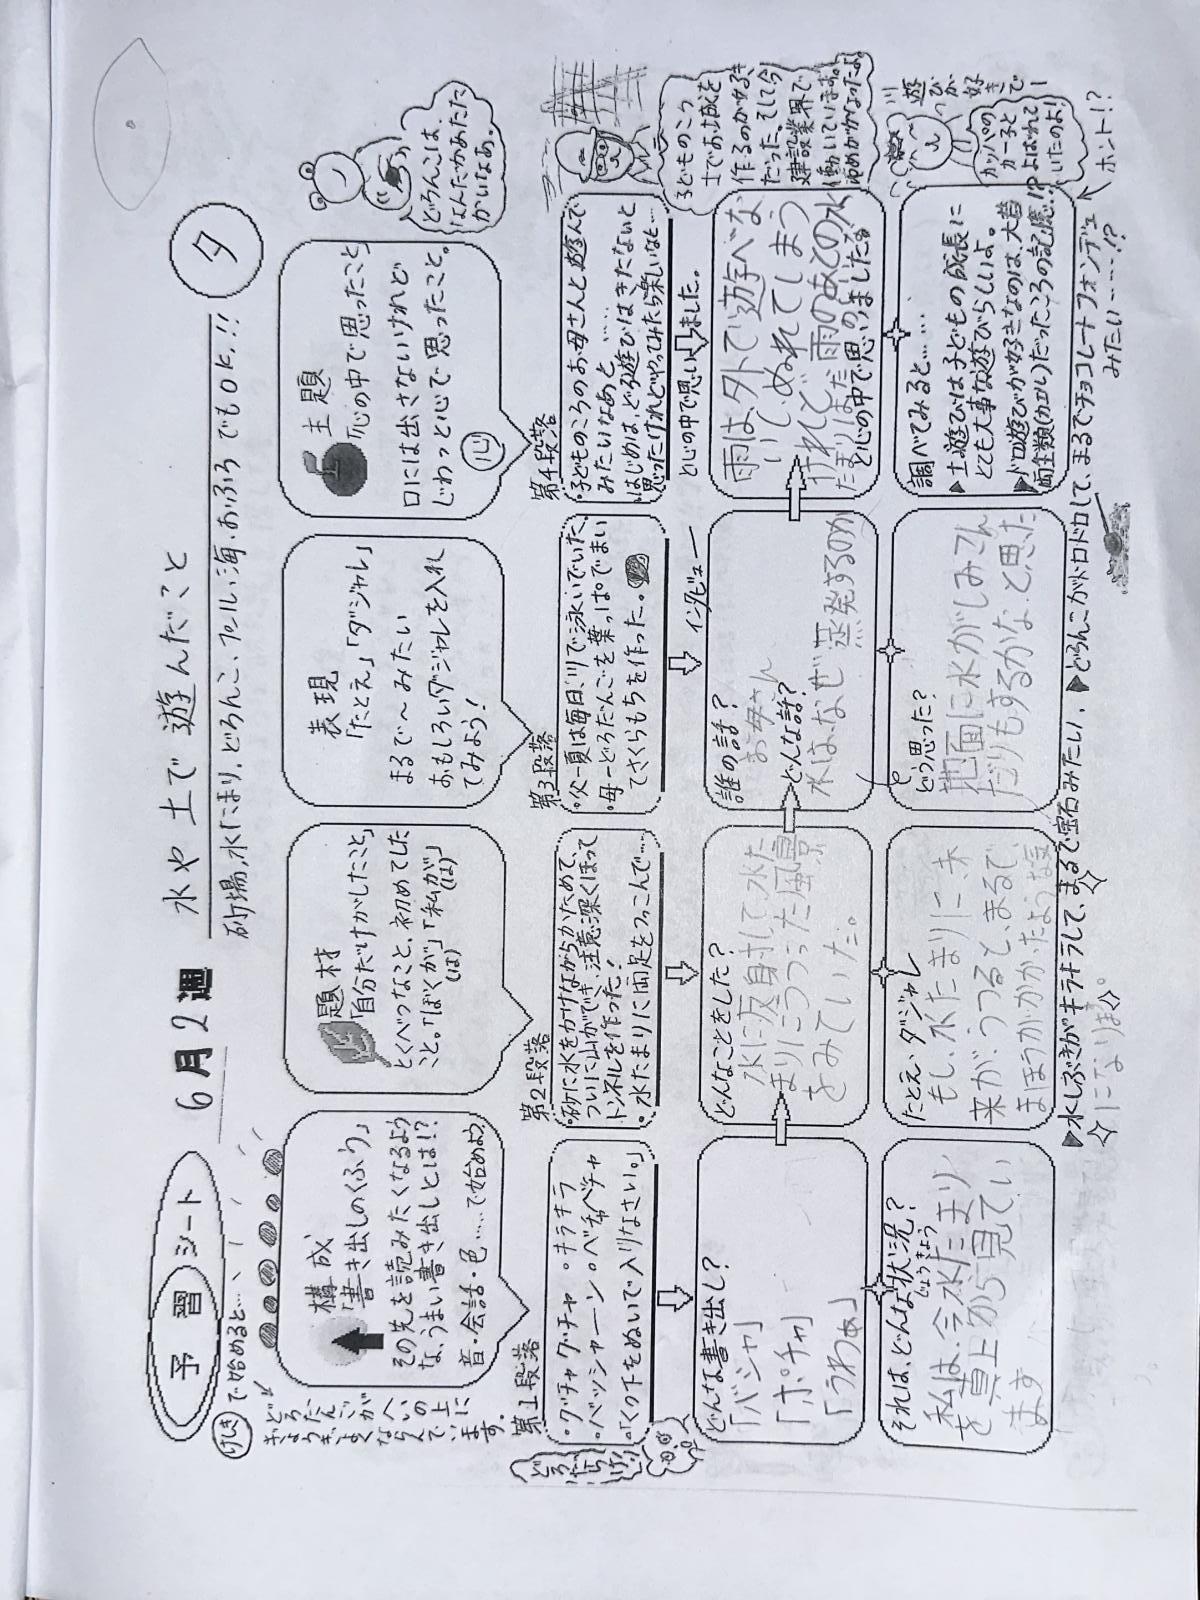 予習シート
6月2週
水や土で遊んだこと
夕
砂場、水たまり、どろんこ、プール、海、おふろでもOK!!
けしきで始めると…
どろだんごがへいの上に
ぎょうぎよくならんでいます。
構成
「書き出しのくふう」
その先を読みたくなるよう
な、うまい書き出しとは!?
音・会話・色……で始めよう
題材
「自分だけがしたこと」
とくべつなこと、初めてした
こと。「ぼくが」「私が」
(は)(は)
表現
「たとえ」「ダジャレ」
まるで〜みたい
おもしろいダジャレを入れ
てみよう!
主題
「心の中で思ったこと」
口には出さないけれど
じわっと心で思ったこと。
心
どろんこは、
なんだかあたた
かいなあ。
第1段落
・グチャグチャ・キラキラ
・バッシャーン・ベチャベチャ
・「くつ下をぬいで入りなさい。」
第2段落
・砂に水をかけながらかためて、
ついに山ができ、注意深くほって
トンネルを作った!
・水たまりに両足をつっこんで…
第3段落
・父ー夏は毎日、川で泳いでいた。
・母ーどろだんごを葉っぱでまい
てさくらもちを作った。
第4段落
・子どものころのお母さんと遊んで
みたいなあと……
・はじめは、どろ遊びはきたないと
思ったけれどやってみたら楽しいなと…
と心の中で思いました。
子どものころ
土でお城を
作るのが好き
だった。そして今
建設業界で
働いています。
ゆめがかなったよ。
どんな書き出し?
「バシャ」
「ポチャ」
「うわぁ」
どんなことをした?
水に反射して、水た
まりにうつった風景
をみていた。
インタビュー
誰の話?
お母さん
どんな話?
水は、なぜ蒸発するのか
雨は、外で遊べな
いし、ぬれてしまう
けれど、雨のあとの水
たまりはまだ
と心の中で思いました
それは、どんな状況?
じょうきょう
私は、今水たまり
を真上から見てい
ます
たとえ、ダジャレ
もし、水たまりに、未
来が、うつると、まるで、
まほうがかかったような気
になります。
どう思った?
地面に水がしみこん
だりもするかな、と思った
調べてみると……
▶土遊びは子どもの成長に
とても大事な遊びらしいよ。
▶ドロ遊びが好きなのは、大昔
両生類(カエル)だったころの記憶!?
川遊びが好きで
カッパの
カー子と
よばれて
いたのよ!
ホント!?
▶水しぶきがキラキラして、まるで宝石みたい。▶どろんこがドロドロして、まるでチョコレートフォンデュ
みたい……!?